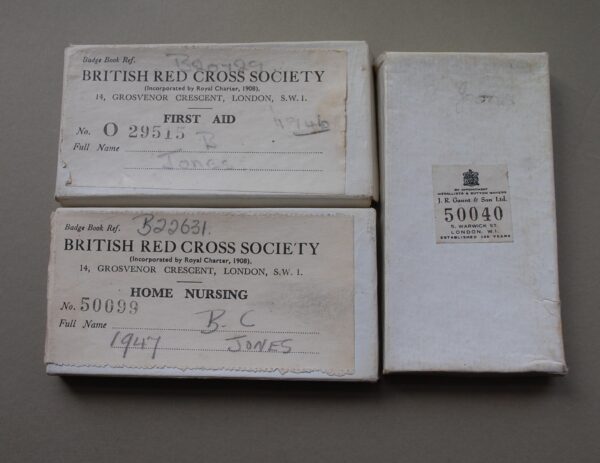 Badge Book Ref.
BRITISH RED CROSS SOCIETY
(Incorporated by Royal Charter, 1908).
14, GROSVENOR CRESCENT, LONDON, S.W. 1.
FIRST AID
1946
No. O 29515
Full Name B
Jones
Badge Book Ref. B22631.
BRITISH RED CROSS SOCIETY
(Incorporated by Royal Charter, 1908).
14, GROSVENOR CRESCENT, LONDON, S.W. 1.
HOME NURSING
No. 50699
Full Name B. C
1947 JONES
BY APPOINTMENT
MEDALLISTS & BUTTON MAKERS
J. R. Gaunt & Son Ltd.
50040
5, WARWICK ST.
LONDON. W.1.